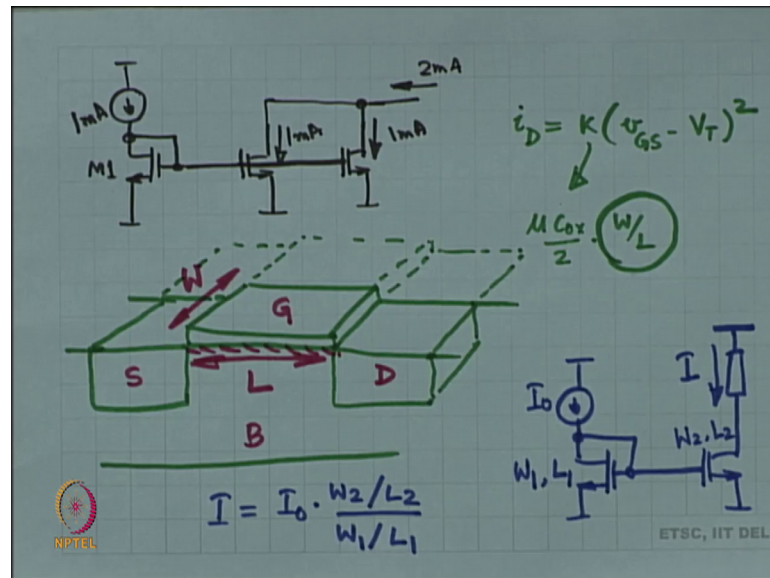 2mA
1mA
M1
1mA
1mA
i_D = K (v_GS - V_T)^2
μC_ox/2 · W/L
W
G
S
L
D
B
I_0
I
W1, L1
W2, L2
I = I_0 · (W2/L2)/(W1/L1)
NPTEL
ETSC, IIT DEL